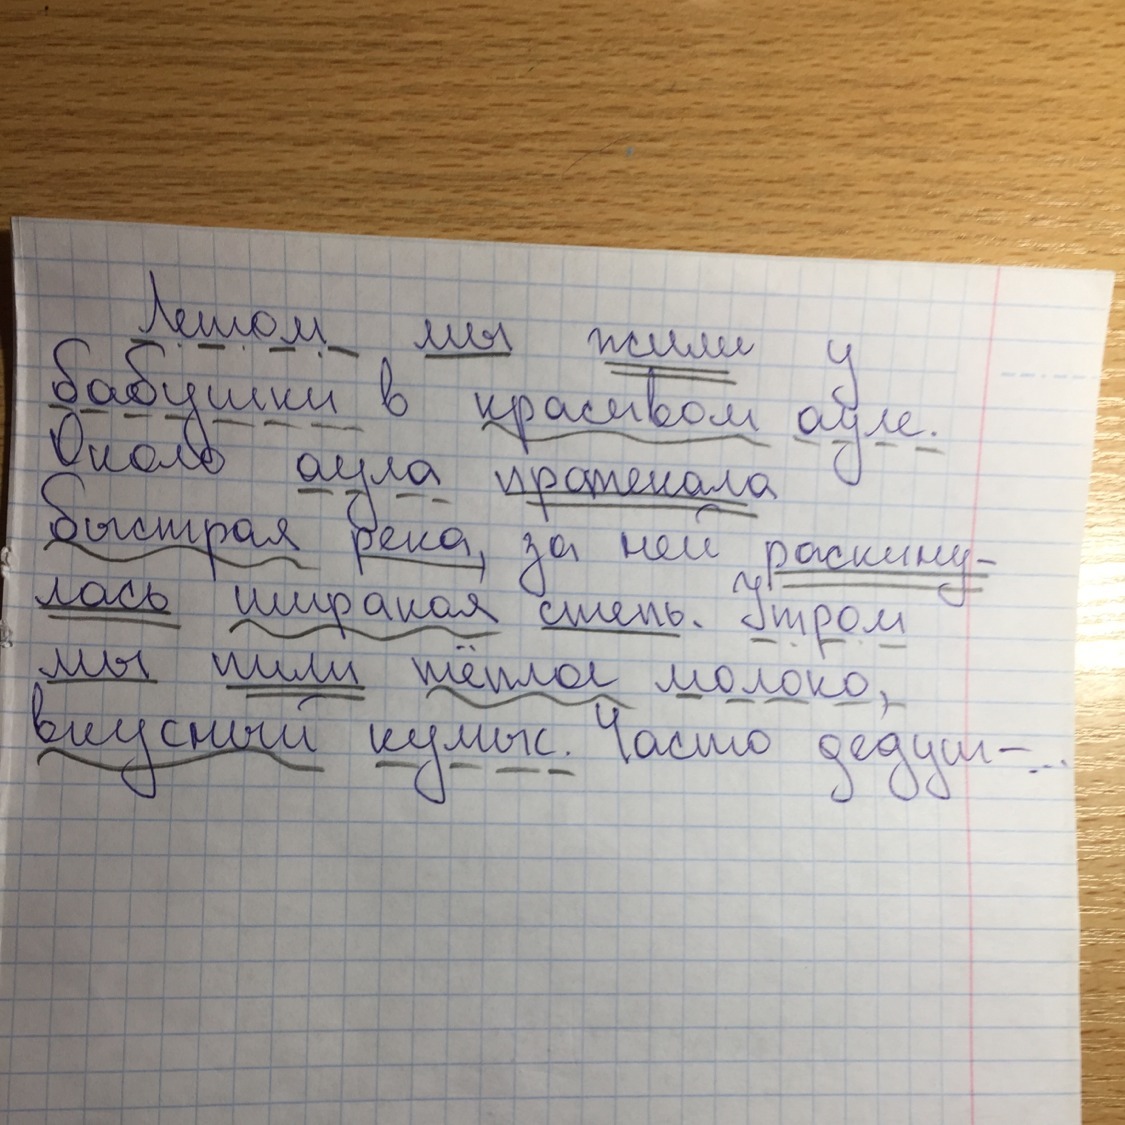 Летом мы жили у
бабушки в красивом ауле.
Около аула пратекала
быстрая река, за ней раскину-
лась широкая степь. Утром
мы пили тёплое молоко,
вкусный кумыс. Часто дедуш-...